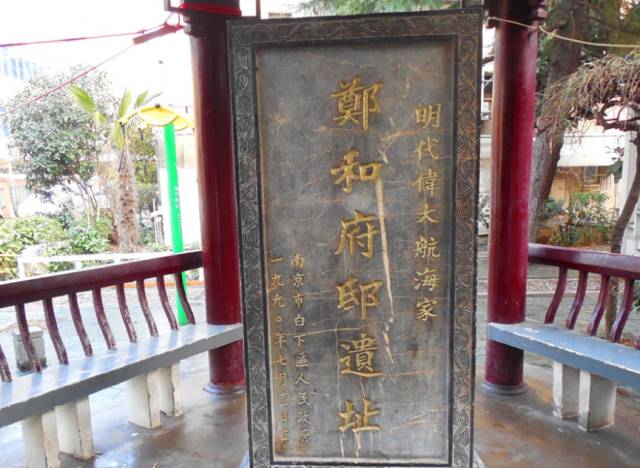 明代偉大航海家
鄭和府邸遺址
南京市白下區人民政府
一九九〇年七月十一日